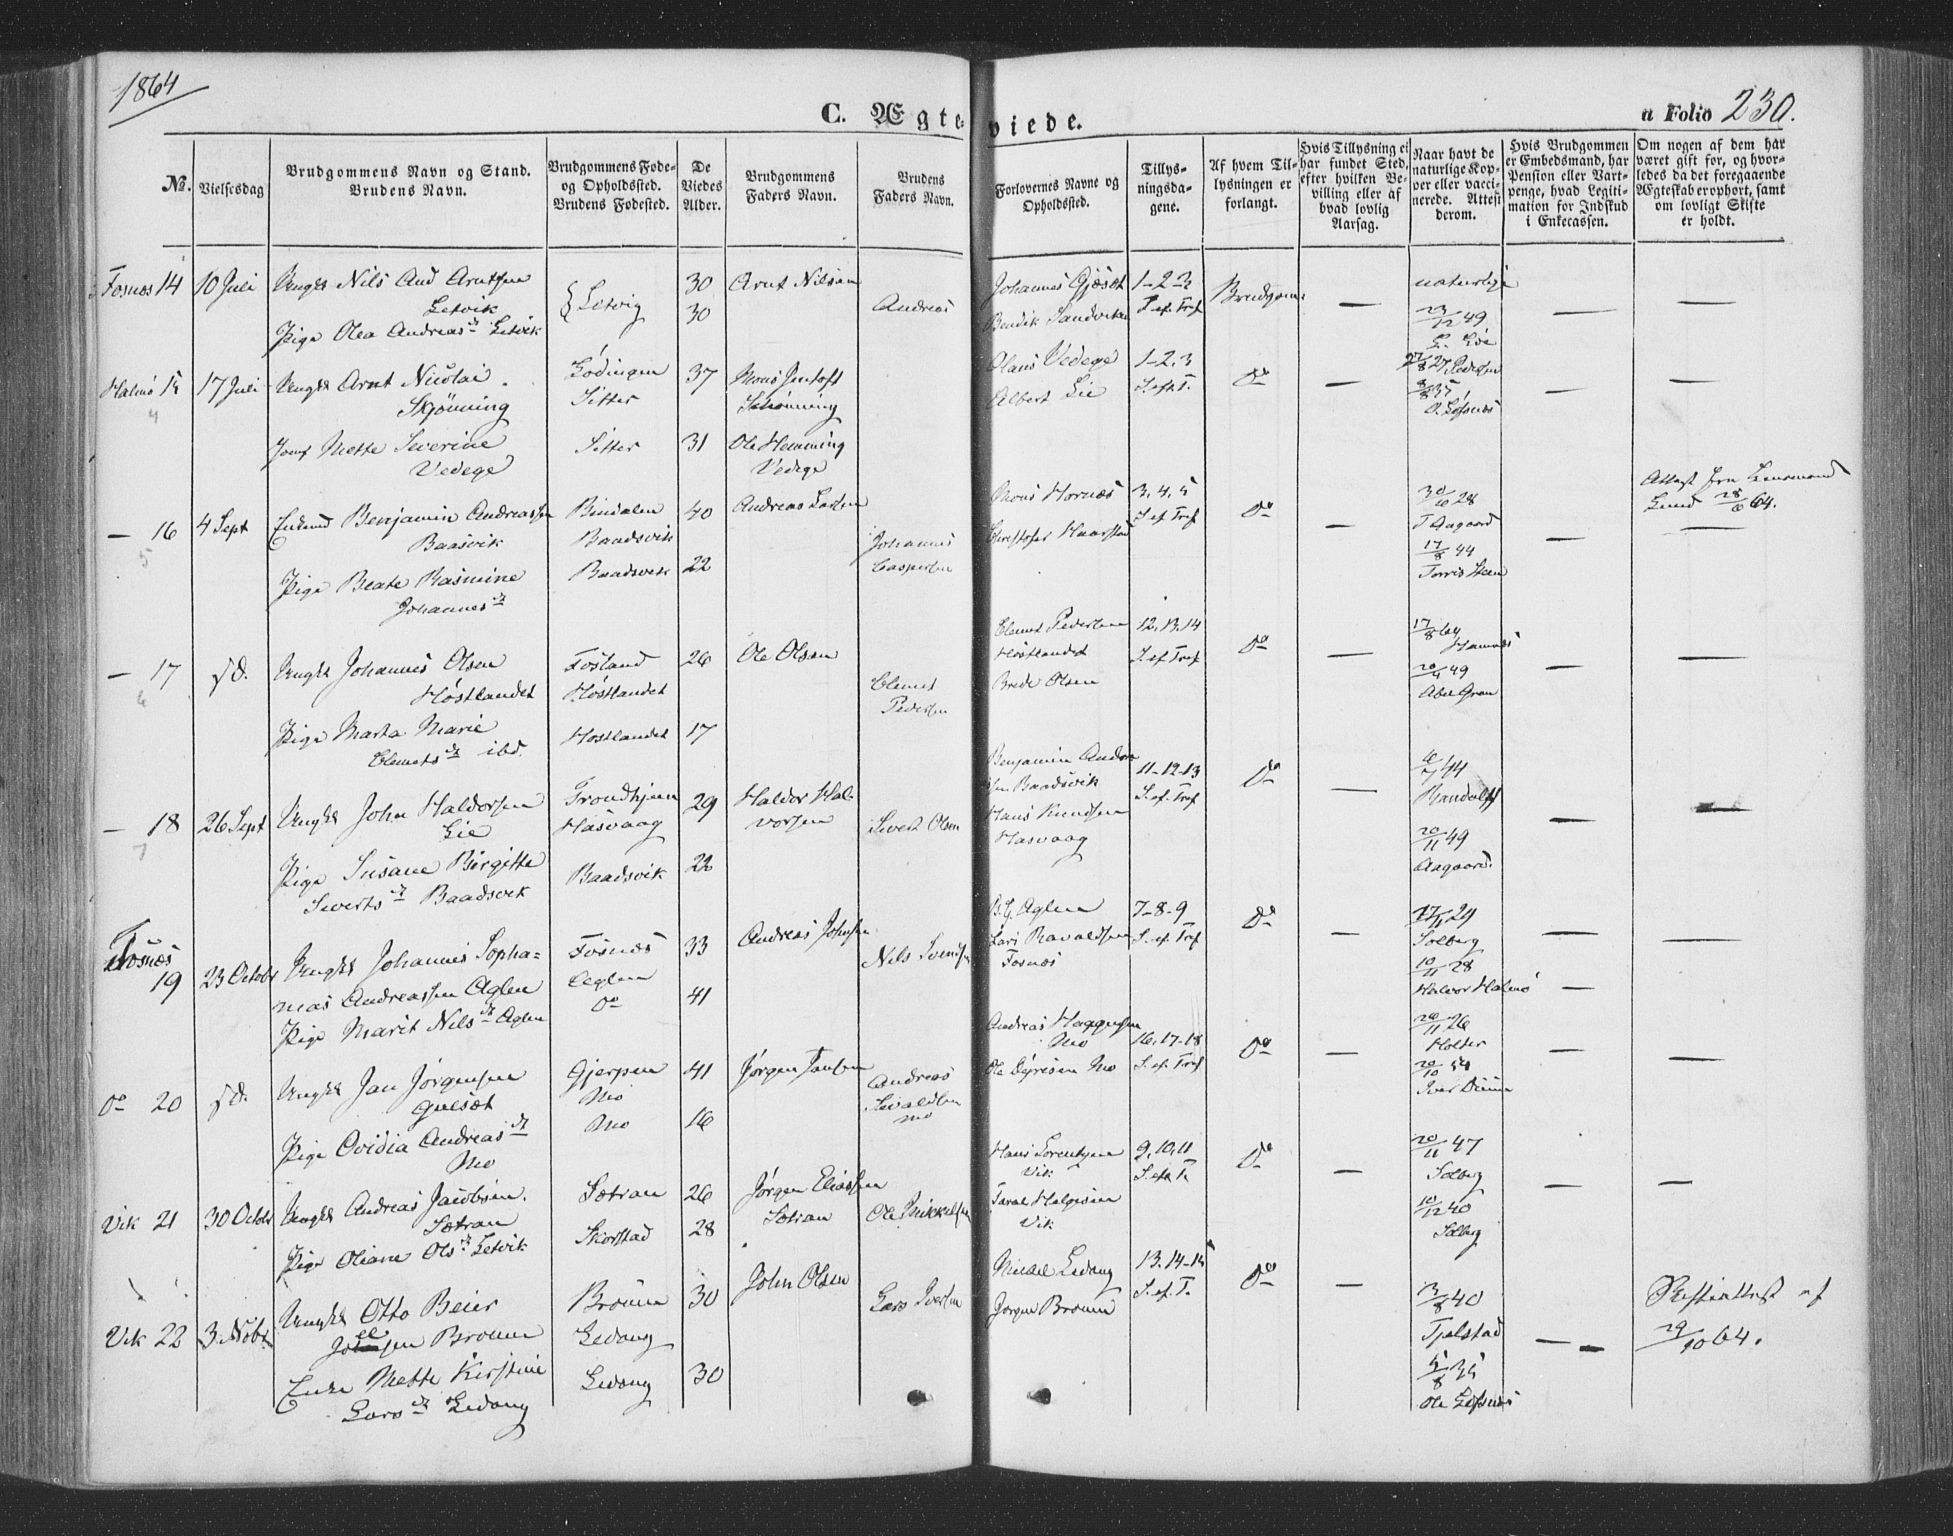 1864
C. Ægteviede.
a Folio 230.
No.
Vielsesdag
Brudgommens Navn og Stand.
Brudens Navn.
Brudgommens Føde-
og Opholdssted.
Brudens Fødested.
De
Viedes
Alder.
Brudgommens
Faders Navn.
Brudens
Faders Navn.
Forlovernes Navne og
Opholdssted.
Tillys-
ningsda-
gene.
Af hvem Til-
lysningen er
forlangt.
Hvis Tillysning ei
har fundet Sted,
efter hvilken Be-
villing eller af
hvad lovlig
Aarsag.
Naar havt de
naturlige Kop-
per eller vacci-
nerede. Attest
derom.
Hvis Brudgommen
er Embedsmand, har
Pension eller Vart-
penge, hvad Legiti-
mation for Indskud
i Enkecassen.
Om nogen af dem har
været gift før, og hvor-
ledes da det foregaaende
Ægteskab er ophørt, samt
om lovligt Skifte
er holdt.
Fosnæs 14 10 Juli Ungk Nils And Arntsen
Letvik
Pige Olea Andreasdt Letvik
Letvig
30
30
Arnt Nilsen
Andreas
Johannes Gjæset
Bendik Sandvik
1-2-3
S. ef. Tref
Brudgom
—
naturlige
23/12 49
L. Lie
—
—
Halmø 15 17 Juli Ungk Arnt Nicolai
Skjönning
Jomf Mette Severine
Vedege
Lödingen
Sitter
Sitter
37
31
Mons Jentoft
Schönning
Ole Hemming
Vedege
Olaus Vedege
Albert Lie
1-2,3
S. eft T.
Do
—
27/8 27 Pedersen
8/8 35
O. Løfsnæs
—
—
4
— 16 4 Sept Enkmd Benjamin Andreassen
Baasvik
Pige Beate Rasmine
Johannesdt
Bindalen
Baadsvik
Baadsvik
40
22
Andreas Larsen
Johannes
Caspersen
Mons Hornæs
Christofer Haarstad
3, 4, 5
S. ef Tref
Do
—
30/10 28
T Aagaard
17/8 44
Torris Steen
—
Attest fra Lensmand
Lund 28/6 64.
—
5
— 17 sd. Ungk Johannes Olsen
Høstlandet
Pige Marta Marie
Clemetsdt ibd.
Fosland
Høstlandet
Høstlandet
26
17
Ole Olsen
Clemet
Pedersen
Clemet Pedersen
Høstlandet
Brede Olsen
12, 13, 14
S. ef Tref
Do
—
17/8 64
Hamnæs
20/4 49
Abel Gran
—
—
6
— 18 26 Sept Ungk John Haldorsen
Lie
Pige Susane Birgitte
Sivertsdt Baadsvik
Trondhjem
Hasvaag
Baadsvik
29
22
Haldor Hal-
vorsen
Sivert Olsen
Benjamin Andrea
sen Baadsvik
Hans Knudsen
Hasvaag
11-12-13
S. ef. Tref
Do
—
6/7 44
Randulf
20/11 49
Aagaard.
—
—
7
Fosnæs
19 23 Octobr Ungk Johannes Sopha=
nias Andreassen Aglen
Pige Marit Nilsdt Aglen
Fosnæs
Aglen
Do
33
41
Andreas Johnsen
Nils Svendsen
B. G. Aglen
Lars Ravaldsen
Fosnæs
7-8-9
S. ef. Tref
Do
—
17/11 29
Solberg
10/11 28
Halvor Halmø
—
—
Do 20 sd. Ungk Jan Jørgensen
Gulsæt
Pige Ovidia Andreasdt
Mo
Gjerpen
Mo
Mo
41
16
Jørgen Jansen
Andreas
Sivaldsen
Mo
Andreas Haagensen
Mo
Ole Dyresen Mo
16, 17-18
S. ef. Tref
Do
—
26/11 26
Holter
20/10 54
Iver Duun
—
—
Vik 21 30 Octobr Ungk Andreas Jacobsen.
Sætran
Pige Oliane Olsdt Letvik
Sætran
Skorstad
26
28
Jørgen Eliassen
Sætran
Ole Mikkelsen
Hans Lorentzen
Vik
Taral Helgesen
Vik
9, 10, 11
S. eft T.
Do
—
20/11 47
Solberg
10/12 40
Solberg
—
—
Vik 22 3. Nobr Ungk Otto Beier
Johnsen Broum
Enke Mette Kirstine
Larsdt Ledang
Broum
Ledang
Ledang
30
30
John Olsen
Lars Iversen
Michel Ledang
Jørgen Broum
13. 14-15
S. ef. T.
Do
—
13/8 40
Tjelstad
5/8 35
Ole Løfsnæs
—
Skifteattest af
29/10 64.